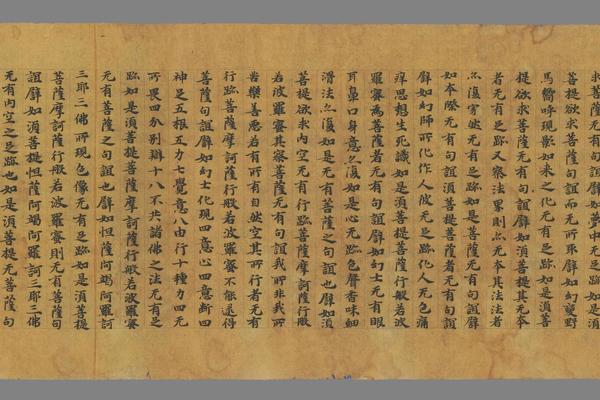 求菩薩无有句誼譬如夢中无足跡如是湏
菩提欲求菩薩句誼而无所取譬如幻變野
馬嚮呼現影如来之化无有足跡如是湏菩
提欲求菩薩无有句誼譬如湏菩提其无本
者无有足跡又察法界則亦无本其法法者
亦復然无有足跡如是菩薩无有句誼譬
如本際无有句誼湏菩提菩薩者无有句誼
譬如幻師所化作人彼无足跡化人无色痛
痒思想生死識如是湏菩提菩薩行般若波
羅蜜為菩薩者无有句誼譬如幻士无有眼
耳鼻口身意亦復如是心无跡色聲香味細
滑法亦復如是无有菩薩之句誼也譬如湏
菩提欲求内空无有行跡菩薩摩訶薩行般
若波羅蜜其察菩薩无有句誼我所非我所
苦樂善惡若有所有自然空其所行者无有
行跡菩薩摩訶薩行般若波羅蜜不能逮得
菩薩句誼譬如幻士化現四意止四意斷四
神足五根五力七覺意八由行十種力四无
所畏四分別辯十八不共諸佛之法无有足
跡如是湏菩提菩薩摩訶薩行般若波羅蜜
无有菩薩之句誼也譬如怛薩阿竭阿羅訶
三耶三佛所現色像无有足跡如是湏菩提
菩薩摩訶薩行般若波羅蜜則无有菩薩句
誼譬如湏菩提怛薩阿竭阿羅訶三耶三佛
无有内空之足跡也如是湏菩提无菩薩句